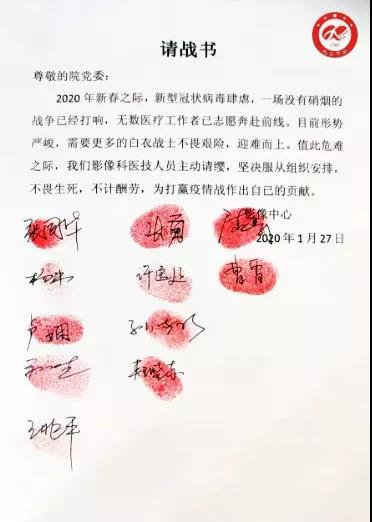 请战书
尊敬的院党委：
2020 年新春之际，新型冠状病毒肆虐，一场没有硝烟的
战争已经打响，无数医疗工作者已志愿奔赴前线。目前形势
严峻，需要更多的白衣战士不畏艰险，迎难而上。值此危难
之际，我们影像科医技人员主动请缨，坚决服从组织安排，
不畏生死，不计酬劳，为打赢疫情战作出自己的贡献。
影像中心
2020 年 1 月 27 日